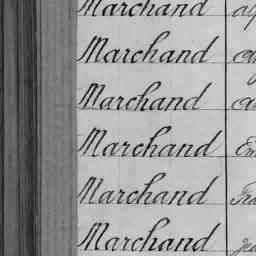 Marchand
Marchand
Marchand
Marchand Em
Marchand
Marchand